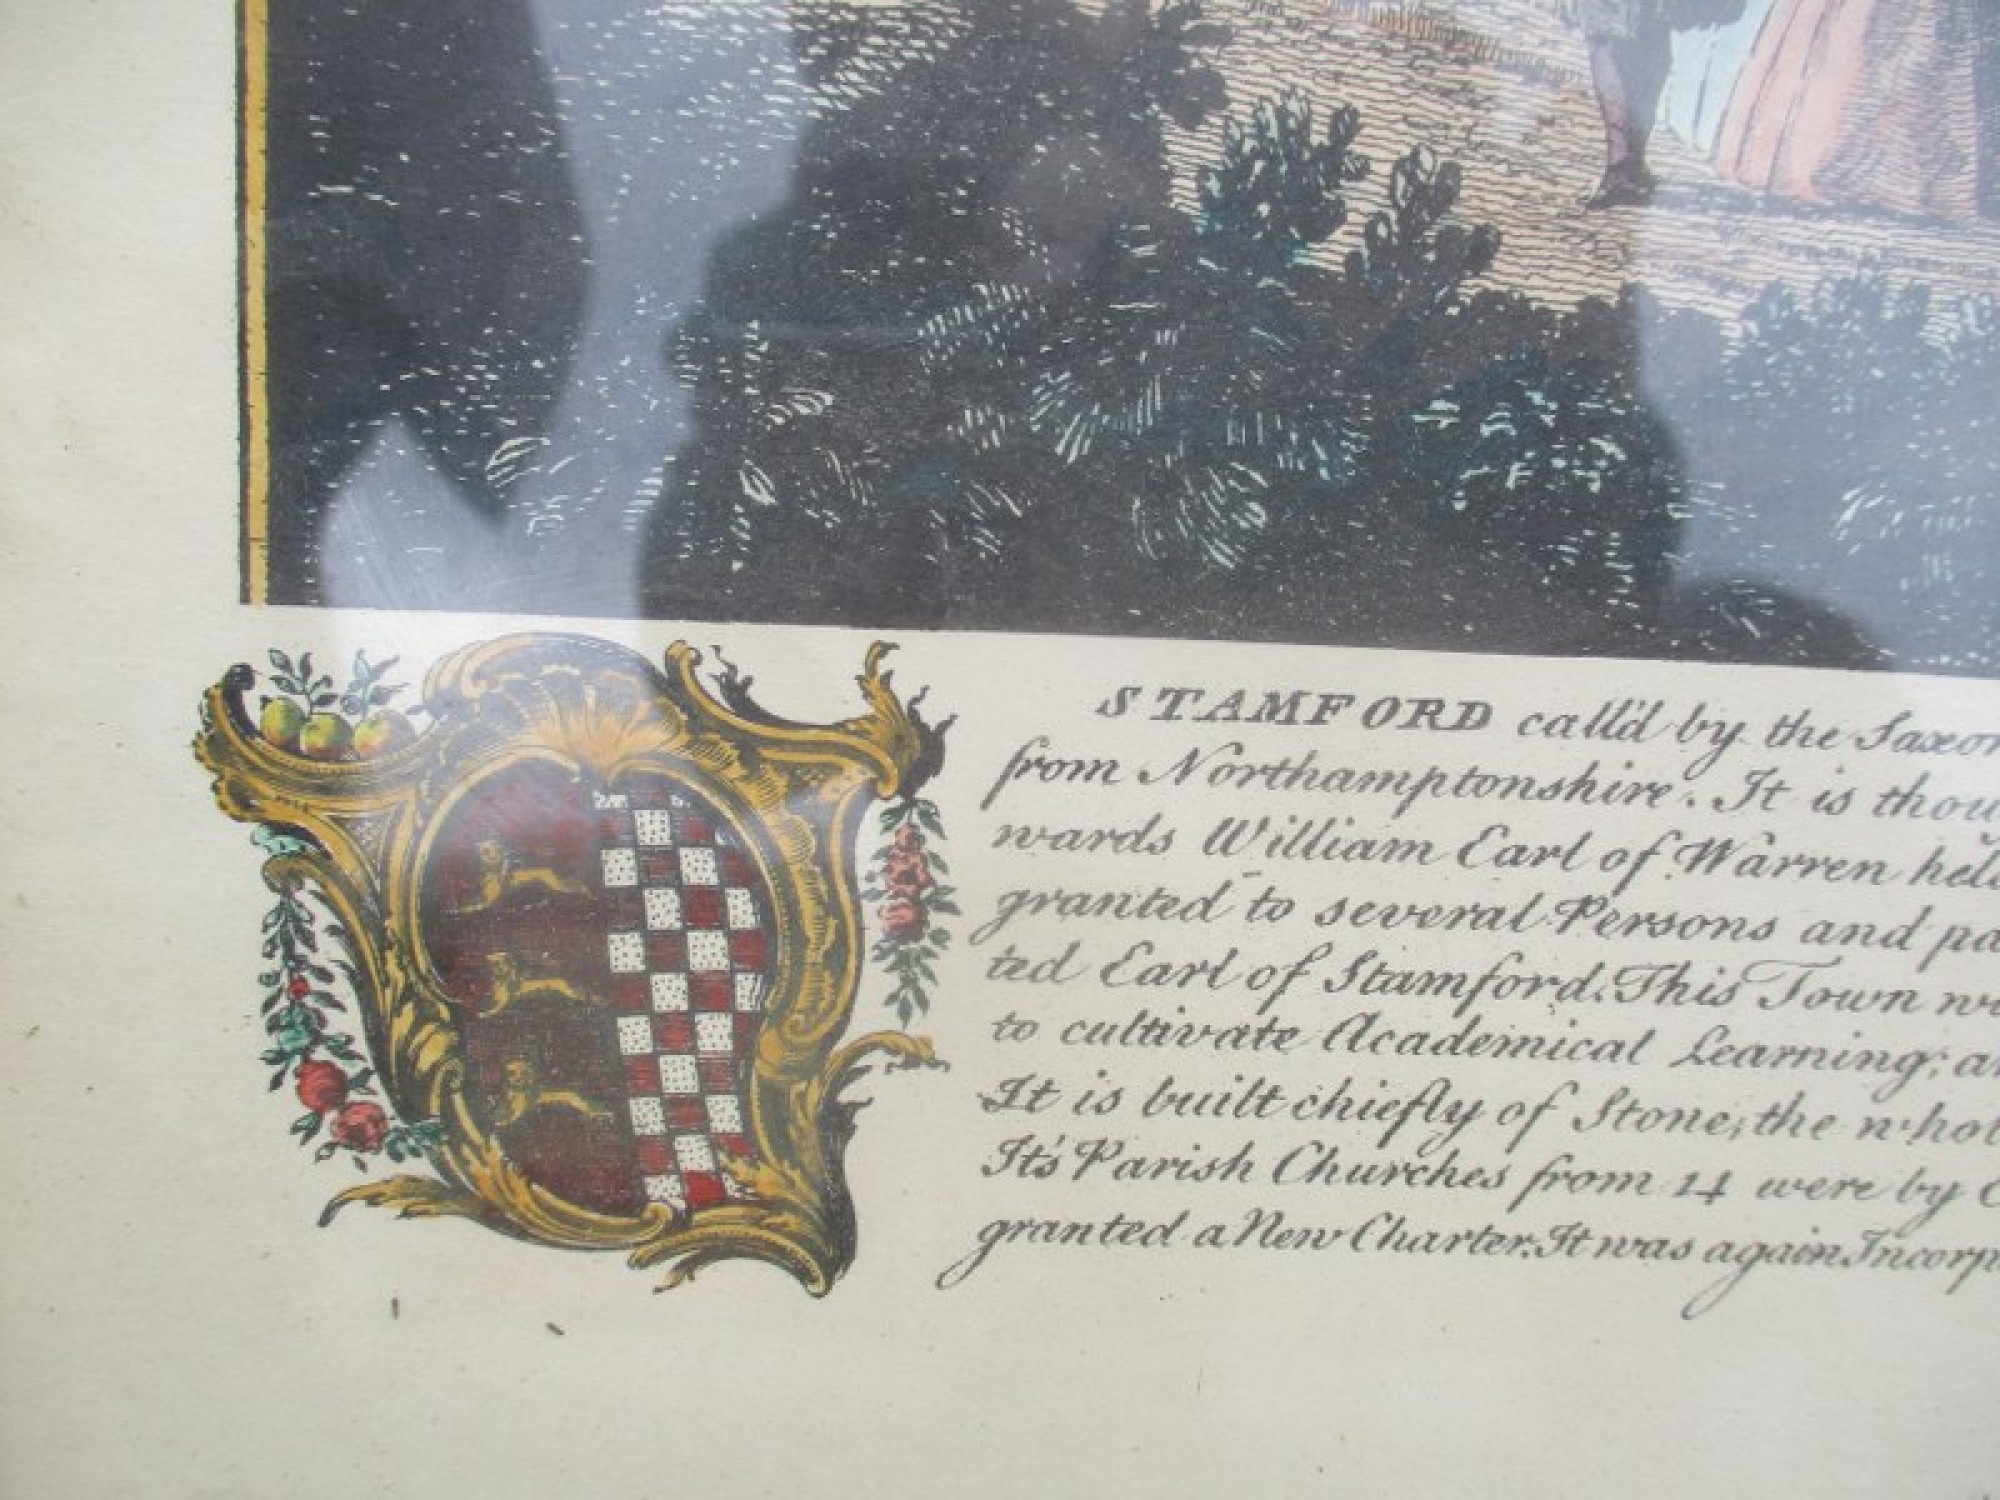 STAMFORD call'd by the Saxon
from Northamptonshire. It is thou
wards William Earl of Warren hel
granted to several Persons and pa
ted Earl of Stamford. This Town w
to cultivate Academical Learning; a
It is built chiefly of Stone, the whol
It's Parish Churches from 14 were by
granted a New Charter. It was again Incorp